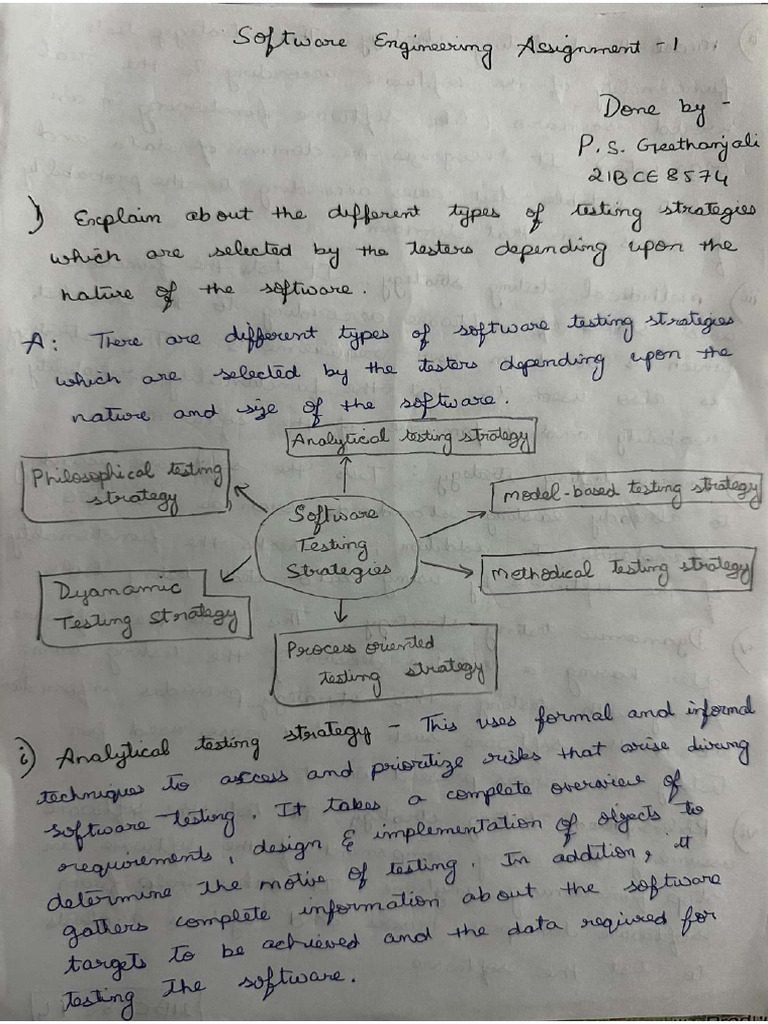 Software Engineering Assignment - 1
Done by -
P. S. Greethanjali
21BCE8574
1) Explain about the different types of testing strategies
which are selected by the testers depending upon the
nature of the software.
A: There are different types of software testing strategies
which are selected by the testers depending upon the
nature and size of the software.
Analytical testing strategy
Philosophical testing
strategy
Model-based testing strategy
Software
Testing
Strategies
Methodical Testing strategy
Dyamamic
Testing Strategy
Process oriented
testing strategy
i) Analytical testing strategy - This uses formal and informal
techniques to access and prioritize risks that arise during
software testing. It takes a complete overview of
requirements, design & implementation of objects to
determine the motive of testing. In addition, it
gathers complete information about the software
targets to be achieved and the data required for
testing the software.